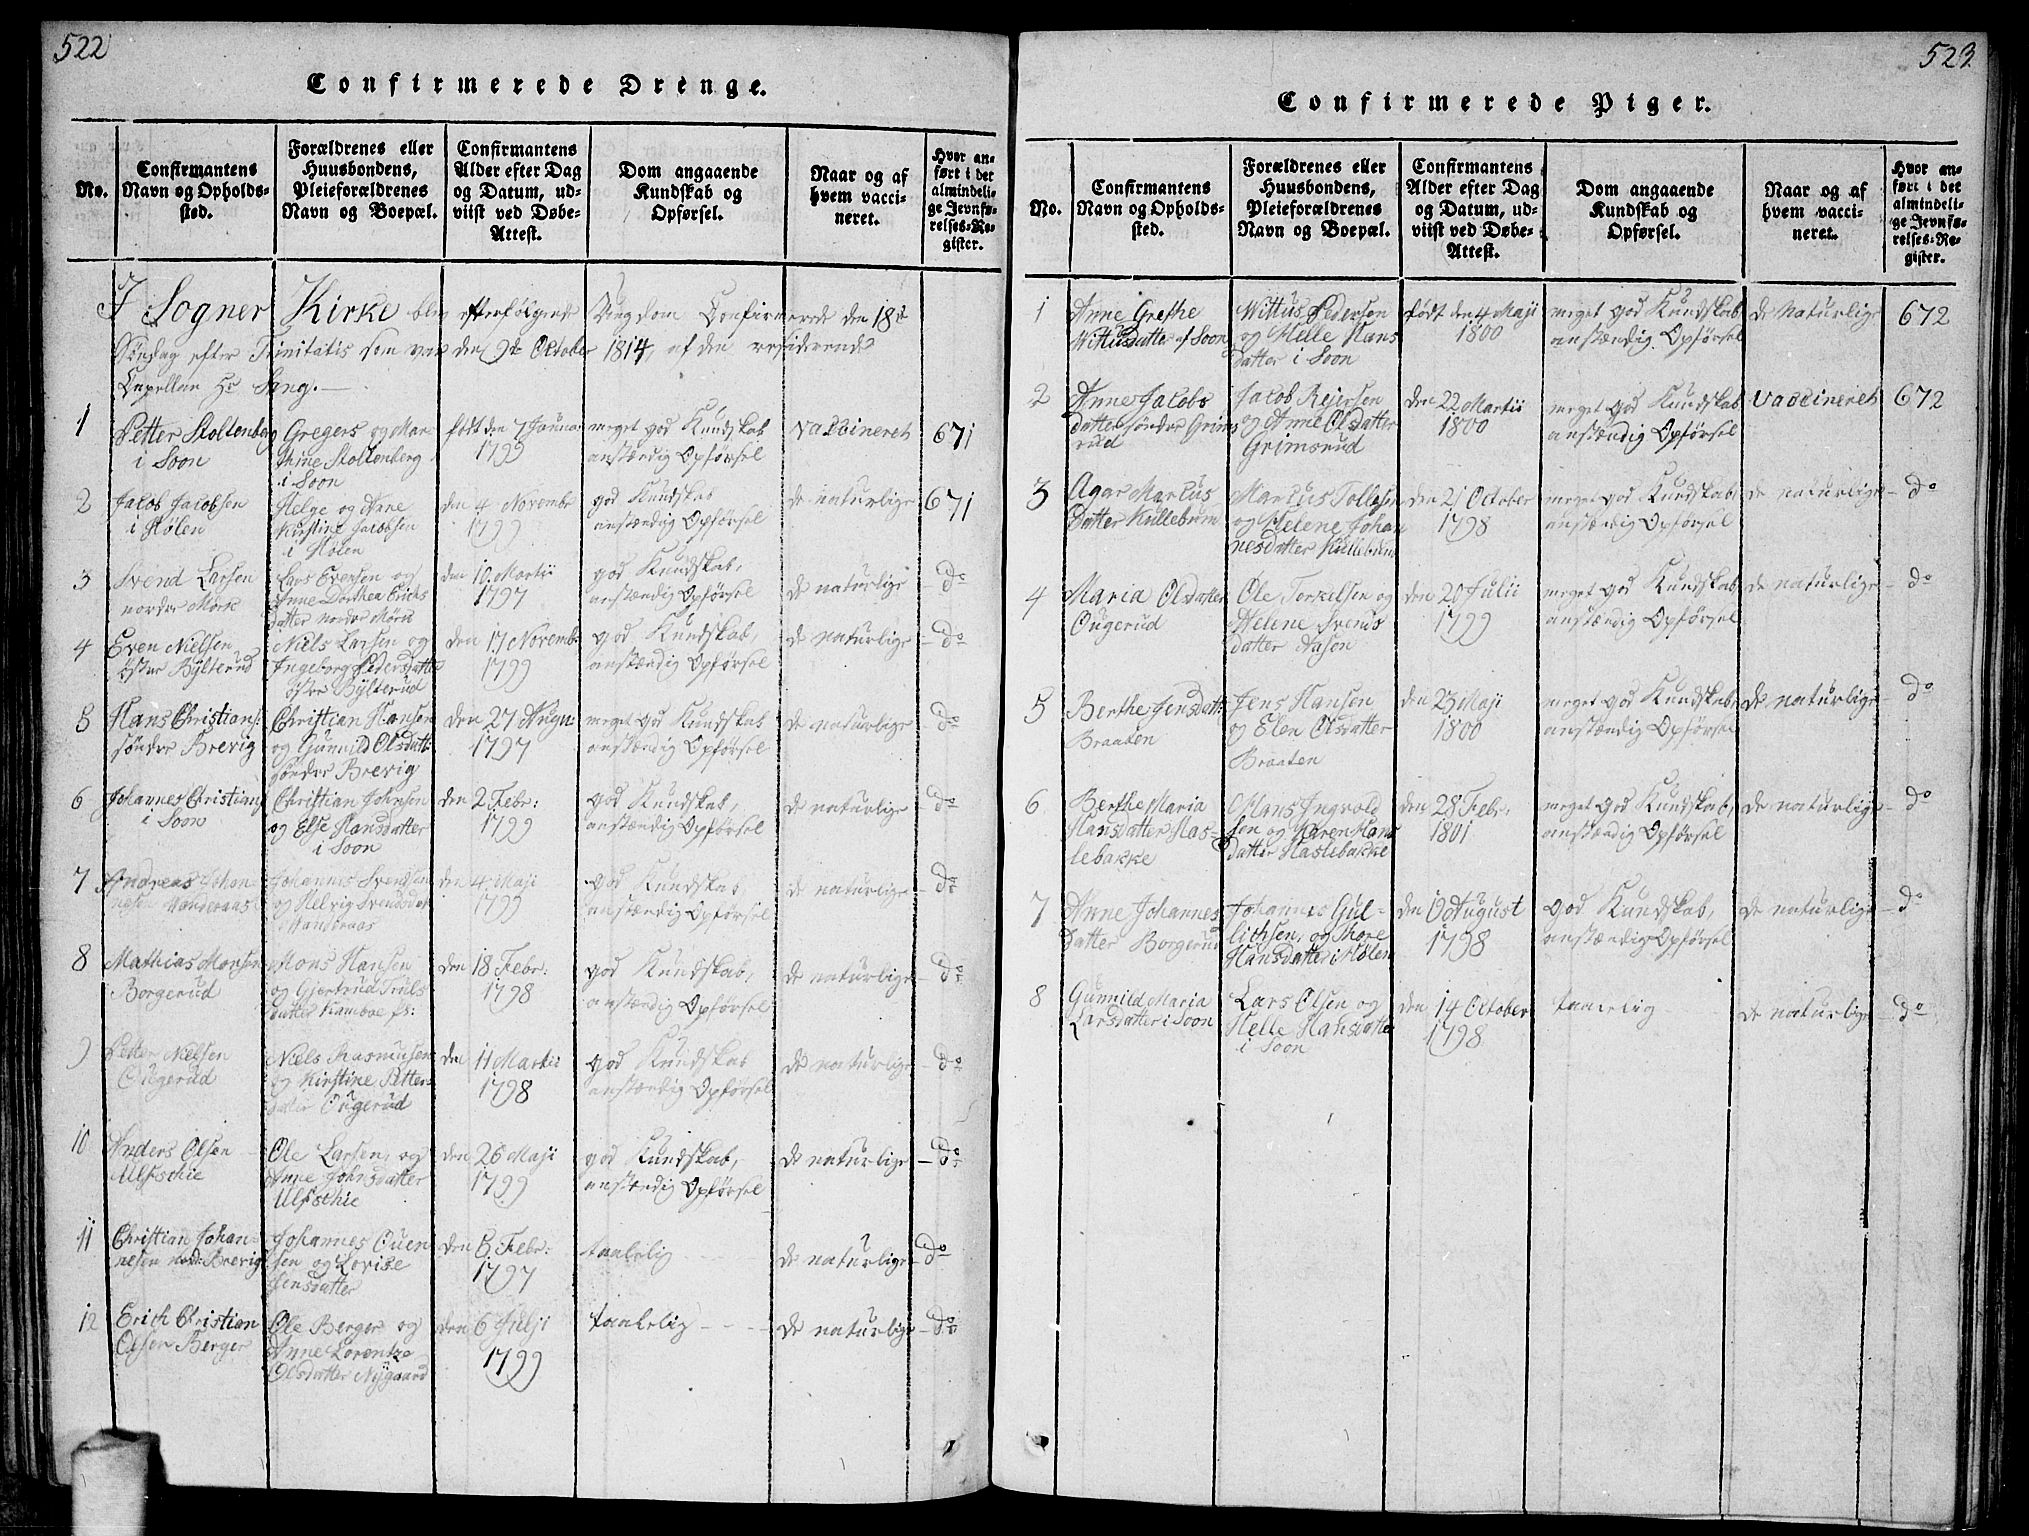 522
Confirmerede Drenge.
No.
Confirmantens
Navn og Opholds-
sted.
Forældrenes eller
Huusbondens,
Pleieforældrenes
Navn og Boepæl.
Confirmantens
Alder efter Dag
og Datum, ud-
viist ved Døbe-
Attest.
Dom angaaende
Kundskab og
Opførsel.
Naar og af
hvem vacci-
neret.
Hvor an-
ført i det
almindeli-
ge Jevnfø-
relses-Re-
gister.
I Sogner Kirke blev efterfølgende Ungdom Confirmerede den 18de
Søndag efter Trinitatis som var den 9de October 1814, af den residerende
Capellan Hr
1
Petter Stoltenberg
i Soon
Gregers og Mar-
thine Stoltenberg
i Soon
født den 7 Janua:
1799
meget god Kundskab
anstændig Opførsel
vaccineret
671
2
Jacob Jacobsen
i Hølen
Helge og Anne
Kirstine Jacobsen
i Hølen
den 4 Novembr
1799
god Kundskab
anstændig Opførsel
de naturlige
671
3
Svend Larsen
nordre Mørk
Lars Evensen og
Anne Dorthea Erichs
datter nordre Mørk
den 10 Martii
1797
god Kundskab,
anstændig Opførsel
de naturlige
do
4
Even Nielsen
østre Bylterud
Niels Larsen og
Ingeborg Pedersdatter
østre Bylterud
den 17 Novemb:
1799
god Kundskab,
anstændig Opførsel
de naturlige
do
5
Hans Christians:
søndre Brevig
Christian Hansen
og Gunnild Olsdatt:
søndre Brevig
den 27 Augu
1797
meget god Kundskab
anstændig Opførsel
de naturlige
do
6
Johannes Christians
i Soon
Christian Johnsen
og Else Hansdatter
i Soon
den 2 Febr:
1799
god Kundskab,
anstændig Opførsel
de naturlige
do
7
Andreas Johan
nesen
Johannes Svendsen
og Helvig Svendsdat
den 4 Maji
1799
god Kundskab,
anstændig Opførsel
de naturlige
do
8
Mathias Monsen
Borgerud
Mons Hansen
og Gjertrud Truls
datter
den 18 Febr:
1798
god Kundskab,
anstændig Opførsel
de naturlige
do
9
Petter Nielsen
Ougerud
Niels Rasmusen
og Kirstine Petters
datter Ougerud
den 11 Martii
1798
god Kundskab
anstændig Opførsel
de naturlige
do
10
Anders Olsen
Ulfschie
Ole Larsen, og
Anne Johnsdatter
Ulfschie
den 26 Maji
1799
god Kundskab,
anstændig Opførsel
de naturlige
do
11
Christian Johan-
nesen nord: Brevig
Johannes Ouen
sen og Lovise
Jensdatter
den 6 Febr:
1797
taalelig
de naturlige
do
12
Erich Christian
Olsen Berger
Ole Berger og
Anne Lorentze
Olsdatter Nygaard
den 6 Julji
1799
taalelig
de naturlige
do
523
Confirmerede Piger.
No.
Confirmantens
Navn og Opholds-
sted.
Forældrenes eller
Huusbondens,
Pleieforældrenes
Navn og Boepæl.
Confirmantens
Alder efter Dag
og Datum, ud-
viist ved Døbe-
Attest.
Dom angaaende
Kundskab og
Opførsel.
Naar og af
hvem vacci-
neret.
Hvor an-
ført i det
almindeli-
ge Jevnfø-
relses-Re-
gister.
1
Anne Grethe
Wittusdatter af Soon
Wittus Pedersen
og Helle Hans
datter i Soon
født den 4 Maji
1800
meget god Kundskab
anstændig Opførsel
de naturlige
672
2
Anne Jacobs
datter søndre Grims
rud
Jacob Rejersen
og Anne Olsdatter
Grimsrud
den 22 Martii
1800
meget god Kundskab
anstændig Opførsel
vaccineret
672
3
Agar Marcus
datter Kullebunn
Marcus Tollefsen
og Helene Johan
nesdatter Kullebunn
den 21 October
1798
meget god Kundskab,
anstændig Opførsel
de naturlige
do
4
Maria Olsdatter
Ougerud
Ole Torkelsen og
Helene Svends
datter Aasen
den 20 Julii
1799
meget god Kundskab
anstændig Opførsel
de naturlige
do
5
Berthe Jensdatt:
Braaten
Jens Hansen
og Elen Olsdatter
Braaten
den 23 Maji
1800
meget god Kundskab
anstændig Opførsel
de naturlige
do
6
Berthe Maria
Hansdatter Has-
lebakke
Hans Ingvold
sen og Karen Hans
datter Haslebakke
den 28 Febr:
1801
meget god Kundskab,
anstændig Opførsel
de naturlige
do
7
Anne Johannes
datter Borgerud
Johannes Gul-
lichsen, og Thore
Hansdatter i Hølen
den 19 August
1798
god Kundskab,
anstændig Opførsel
de naturlige
do
8
Gunnild Maria
Larsdatter i Soon
Lars Olsen og
Helle Hansdatter
i Soon
den 14 October
1798
taalelig
de naturlige
do